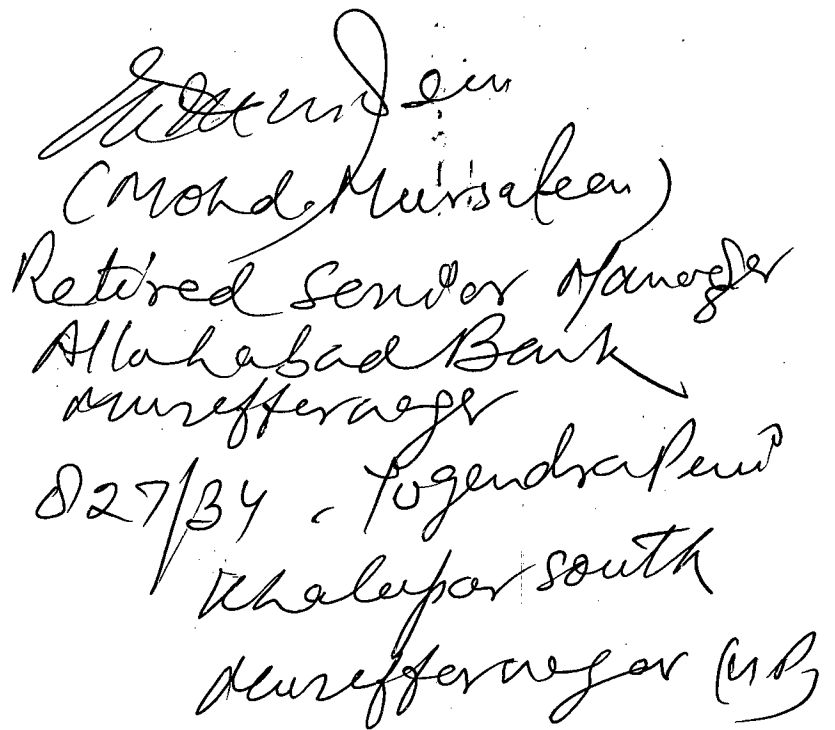 (Mohd. Mursaleen)
Retired Senior Manager
Allahabad Bank
Muzaffarnagar
827/34, Yogendra Puri
Khalapar South
Muzaffarnagar (U.P)